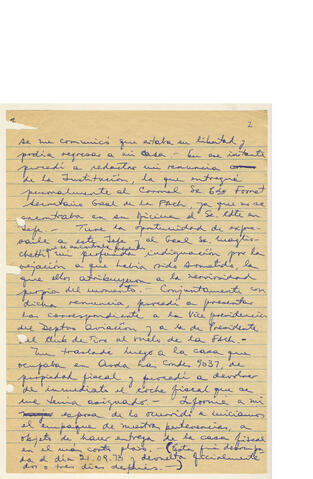 2
se me comunicó que estaba en libertad y
podía regresar a mi casa.- En ese instante
procedí a redactar mi renuncia
de la Institución, la que entregué
personalmente al Coronel Sr Edo Fornet
Secretario Gral de la FACh, ya que no se
encontraba en su oficina el Sr. Cdte en
Jefe.- Tuve la oportunidad de expre-
sarle a este Jefe, y al Gral Sr. Magliochetti
que se encontraba presente mi profunda indignación por la
vejación a que había sido sometido, la
que ellos atribuyeron a la nerviosidad
propia del momento.- Conjuntamente con
dicha renuncia, procedí a presentar
la correspondiente a la Vice presidencia
del Deptvo Aviación y a la de Presidente
del Club de Tiro al vuelo de la FACh.-
Me trasladé luego a la casa que
ocupaba en Avda Las Condes 9037, de
propiedad fiscal y procedí a devolver
de inmediato el coche fiscal que se
me tenía asignado.- Informé a mi
esposa de lo ocurrido e iniciamos
el empaque de nuestras pertenencias, a
objeto de hacer entrega de la casa fiscal
en el más corto plazo. (Esta fue desocupa
da el día 21.09.73 y devuelta oficialmente
dos o tres días después.-)